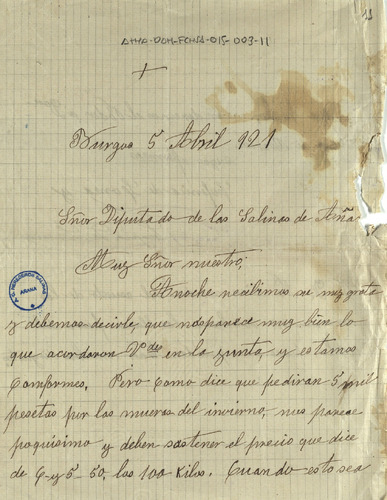 11
ATHA-DAH-FCHSA-015-003-11
+
Burgos 5 Abril 921
Señor Diputado de las Salinas de Aña
Muy Señor nuestro,
Anoche recibimos su muy grata
y debemos decirle, que nos parece muy bien lo
que acordaron Vdes en la junta, y estamos
comformes, Pero como dice que pediran 5 mil
pesetas por las mueras del invierno, nos parece
poquisimo y deben sostener el precio que dice
de 6 y 5-50, los 100 Kilos. Cuando esto sea
HEREDEROS SALINAS
ARANA